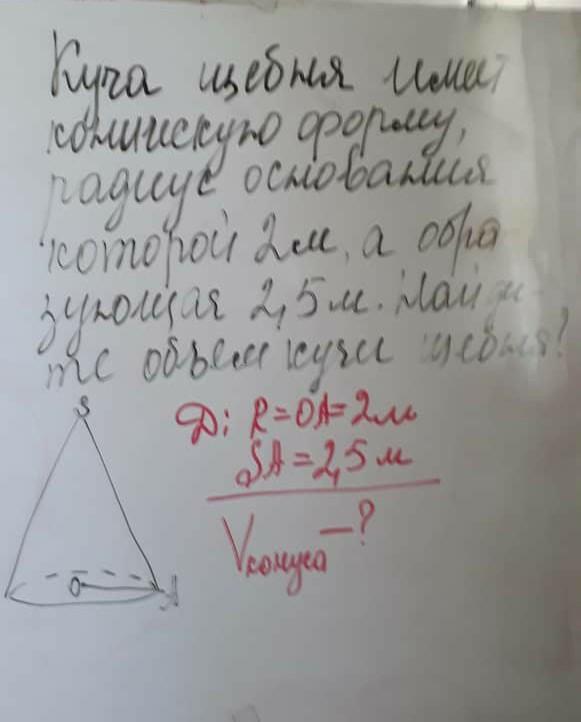 Куча щебня имеет
коническую форму,
радиус основания
которой 2м, а обра
зующая 2,5м. Найди-
те объем кучи щебня?
S
Д: R=OA=2м
SA=2,5м
Vконуса—?
O
A